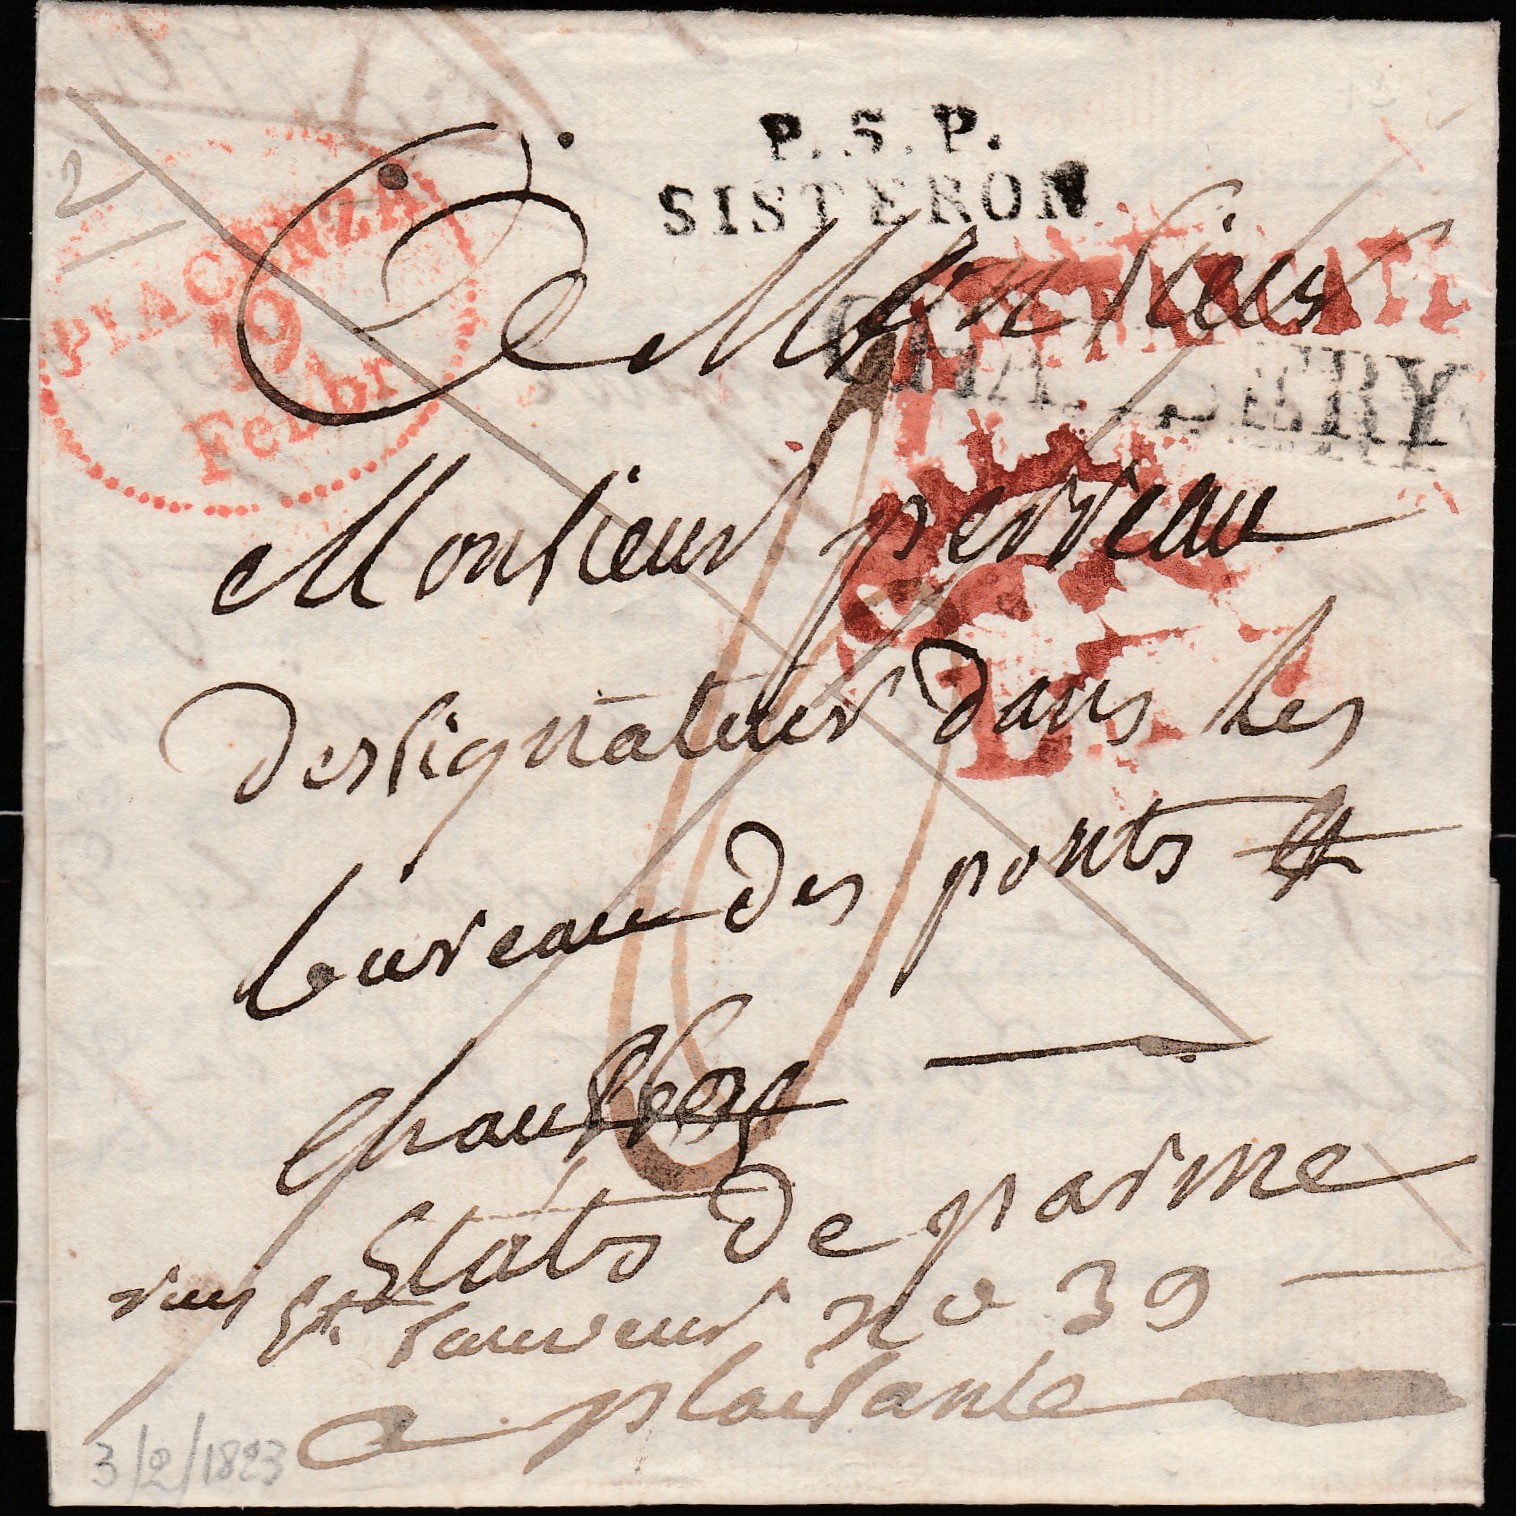 P. S. P.
SISTERON
PIACENZA
19
Febbr
2
A Monsieur
CHAMBERY
Monsieur perreau
dessignateur dans les
bureau des ponts et
chaussées
Etats de parme
rue St. sauveur no 39
a plaisante
3/2/1823